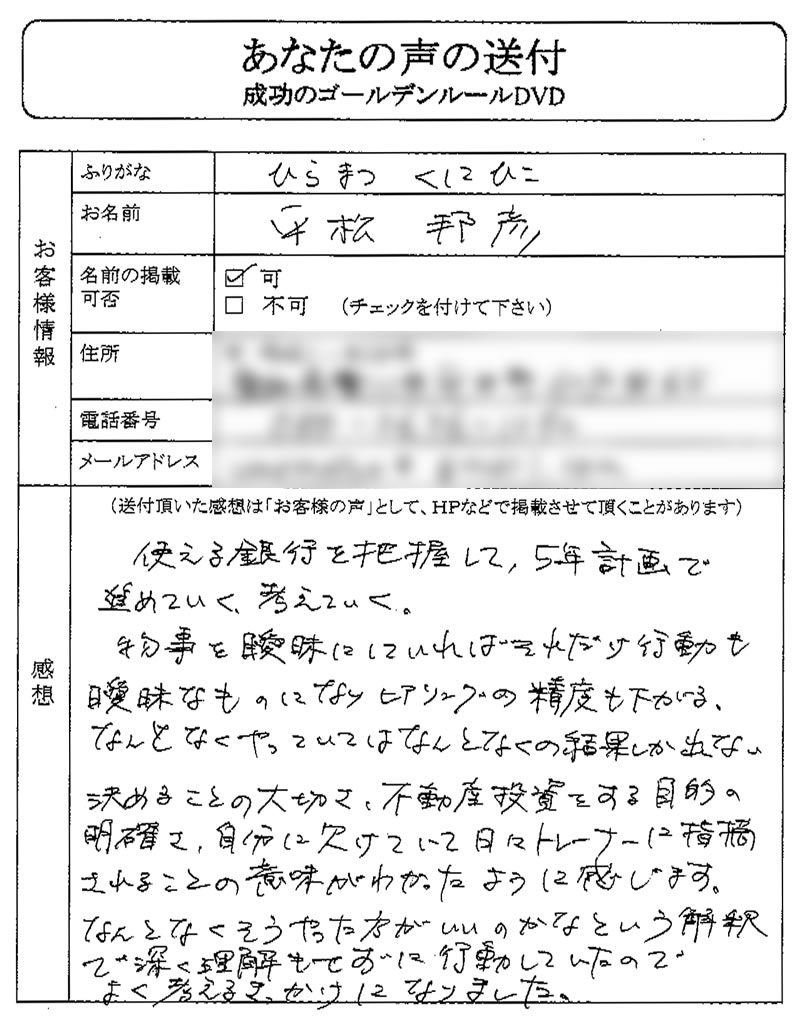 あなたの声の送付
成功のゴールデンルールDVD
お客様情報
ふりがな
ひらまつ くにひこ
お名前
平松 邦彦
名前の掲載
可否
☑ 可
☐ 不可 (チェックを付けて下さい)
住所
電話番号
メールアドレス
感想
(送付頂いた感想は「お客様の声」として、HPなどで掲載させて頂くことがあります)
使える銀行を把握して、5年計画で
進めていく、考えていく。
物事を曖昧にしていればそれだけ行動も
曖昧なものになりヒアリングの精度も下がる、
なんとなくやっていてはなんとなくの結果しか出ない
決めることの大切さ、不動産投資をする目的の
明確さ、自分に欠けていて日々トレーナーに指摘
されることの意味がわかったように感じます。
なんとなくそうやった方がいいのかなという解釈
で深く理解もせずに行動していたので
よく考えるきっかけになりました。